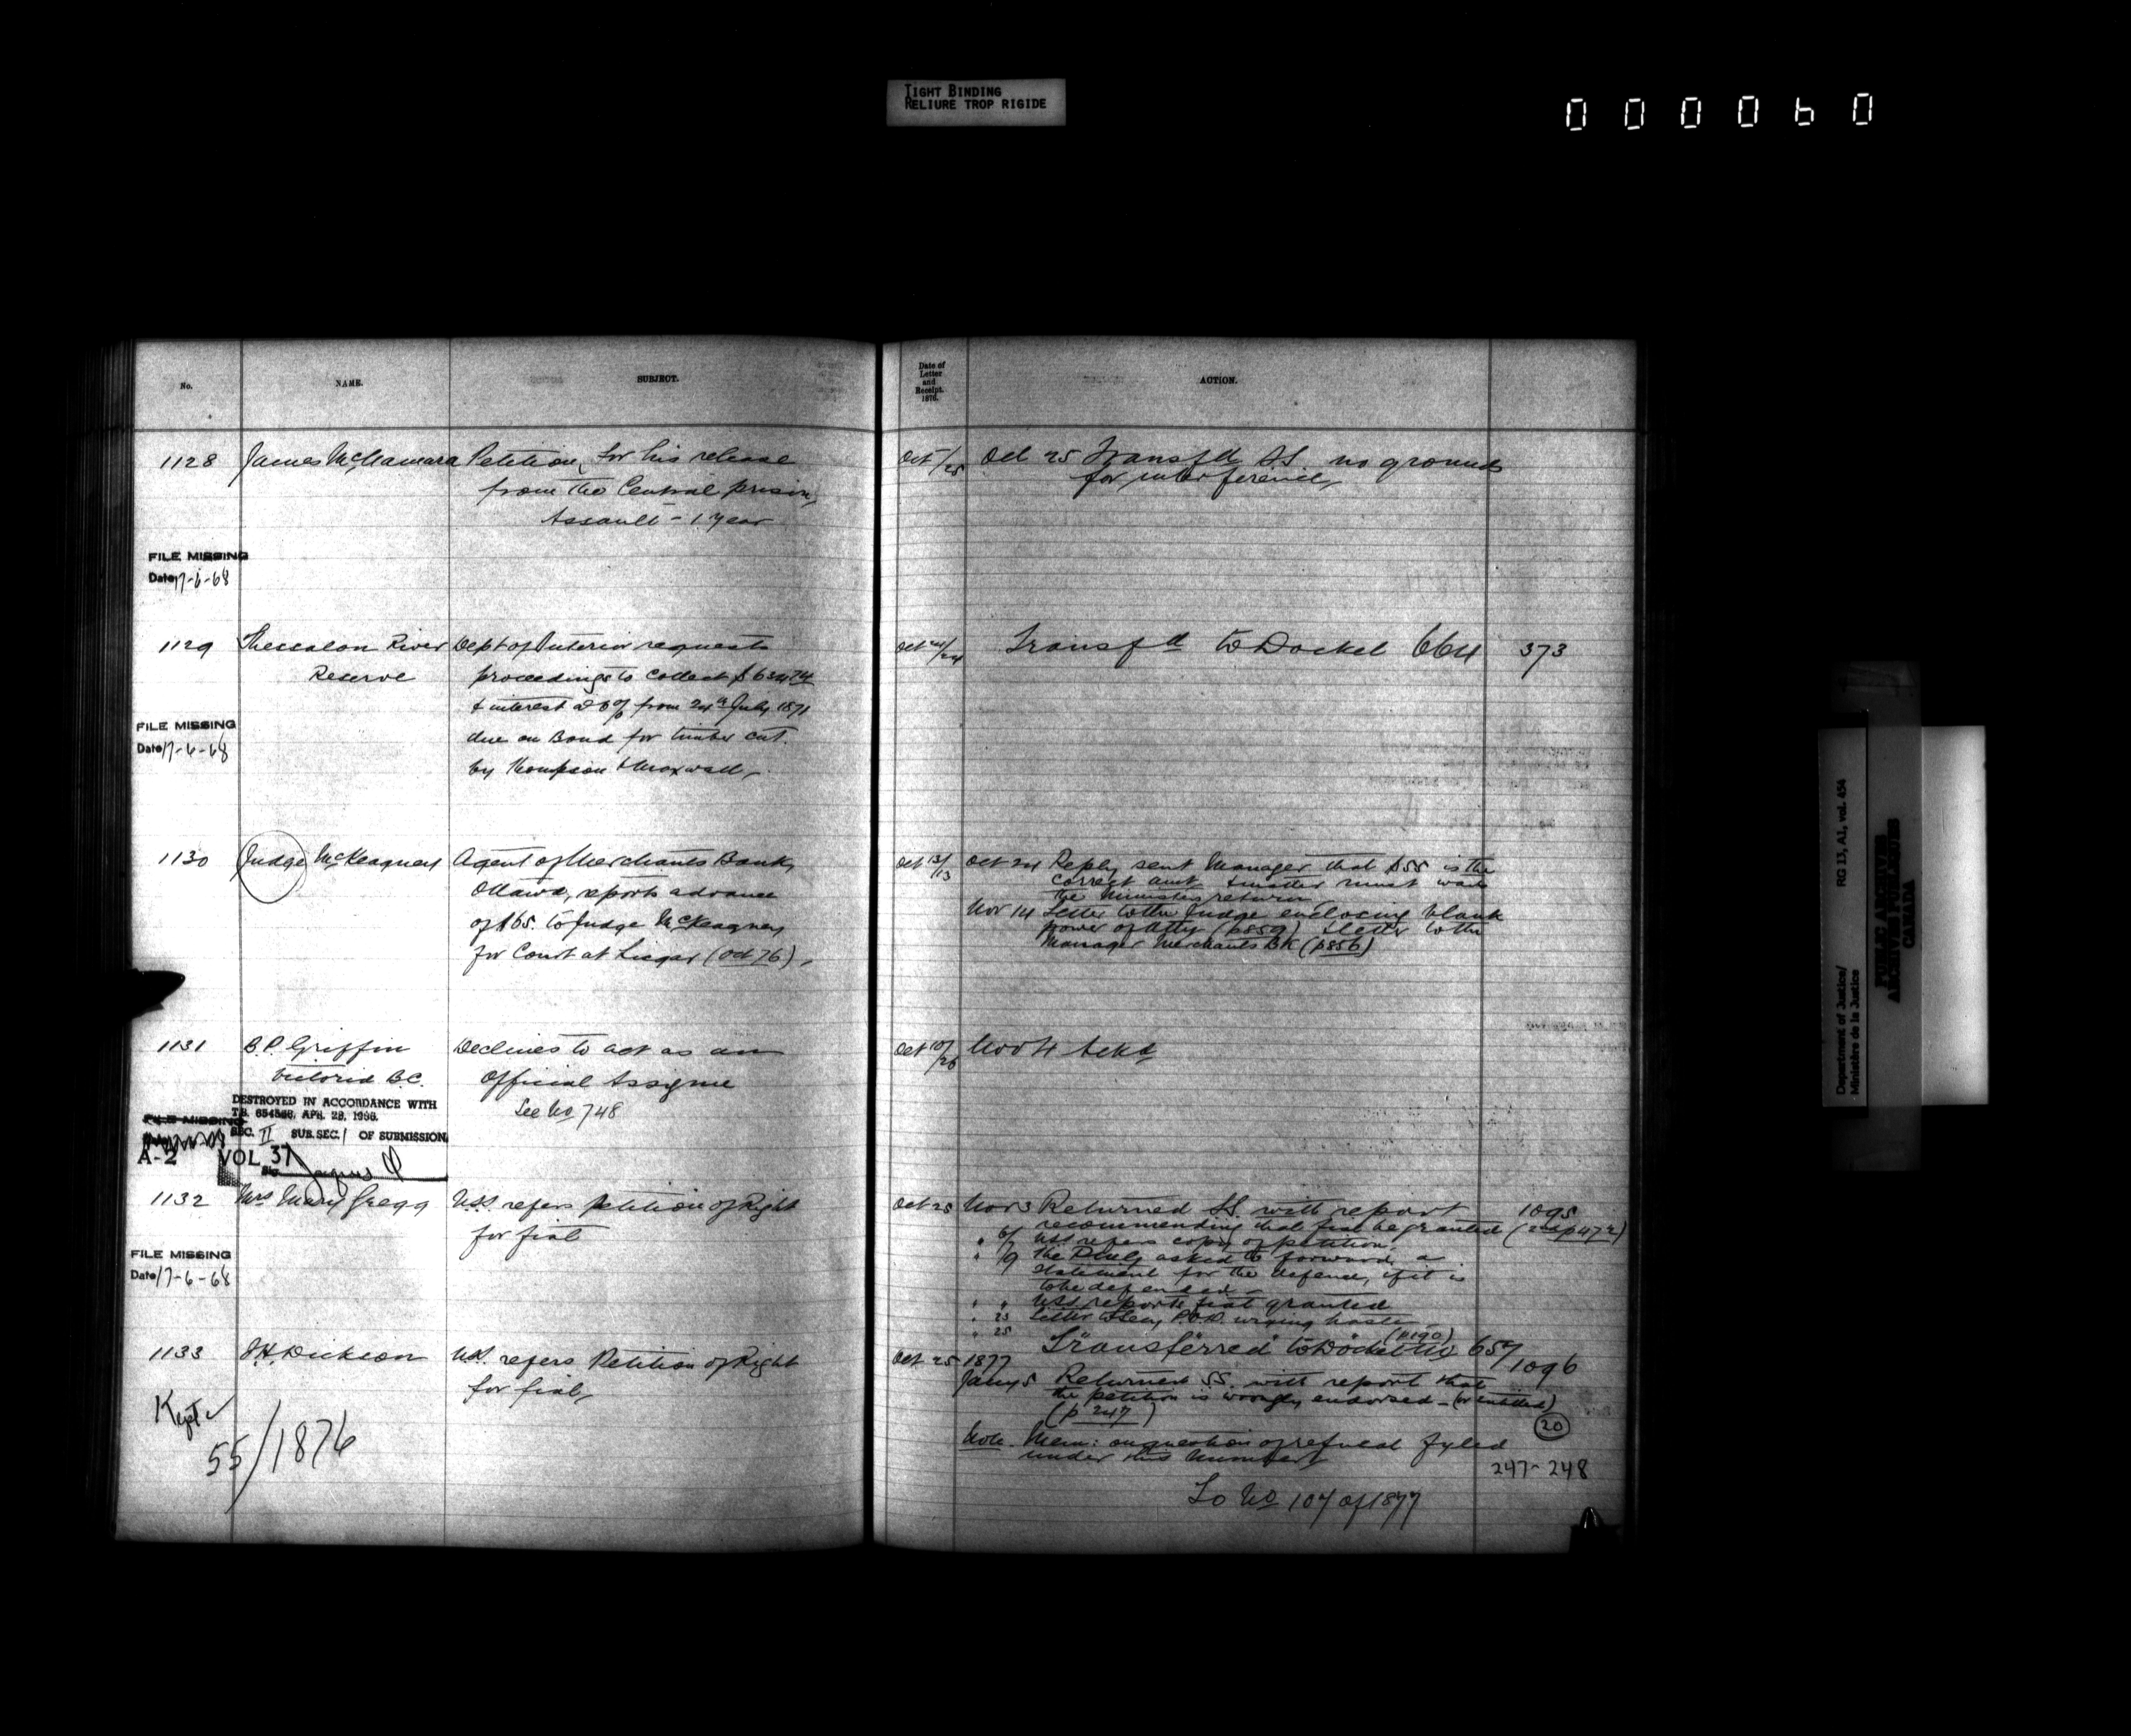 TIGHT BINDING
RELIURE TROP RIGIDE
000060
No.
NAME.
SUBJECT.
Date of
Letter
and
Receipt.
1876.
ACTION.
1128 James McNamara Petition for his release
from the Central prison,
Assault - 1 year
Oct /25 Oct 25 Transfd SS. no grounds
for interference
FILE MISSING
Date 17-6-68
1129 Thessalon River Reserve
Dept of Interior requests
proceedings to collect
& interest @ 6% from 24th July 1871
due on Bond for timber cut
by Thompson & Maxwell
Oct 24/24 Transfd to Docket 664 373
FILE MISSING
Date 17-6-68
1130 Judge McKeagney
Agent of Merchants Bank,
Ottawa, reports advance
of $65. to Judge McKeagney
for Court at Lisgar (Oct 76)
Oct 13/13 Oct 24 Reply sent Manager that $55 is the
correct amt & matter must wait
the Ministers return
Nov 14 Letter to the Judge enclosing blank
power of Atty (p859) & letter to the
Manager Merchants BK (p856)
1131 B.P. Griffin
Victoria B.C.
Declines to act as an
Official Assignee
See No 748
Oct 10/26 Nov 4 Ackd
DESTROYED IN ACCORDANCE WITH
T.B. APR. 28, 1966.
SEC. II SUB. SEC. 1 OF SUBMISSION
FILE MISSING
A-2 VOL 37
1132 Mrs Mary Gregg
USS. refers Petition of Right
for fiat
Oct 25 Nov 3 Returned SS. with report 1095
recommending that fiat be granted (2nd p472)
" 6/ USS refers copy of petition
" 9 The Dept asked to forward a
statement for the defence, if it is
to be defended
" " USS reports fiat granted
" 25 Letter to Secy P.W.D. urging haste
" 25 (p190)
Transferred to Docket No 657
FILE MISSING
Date 17-6-68
1133 J.H. Dickson
USS. refers Petition of Right
for fiat,
Oct 25 1877 1096
Jany 5 Returned SS. with report that
the petition is wrongly endorsed - (or entitled)
(p 247)
20
Note. Mem: on question of refusal fyled
under this number
247-248
To No 107 of 1877
Kept
55/1876
Department of Justice/
Ministère de la Justice
RG 13, A1, vol. 454
PUBLIC ARCHIVES
ARCHIVES PUBLIQUES
CANADA